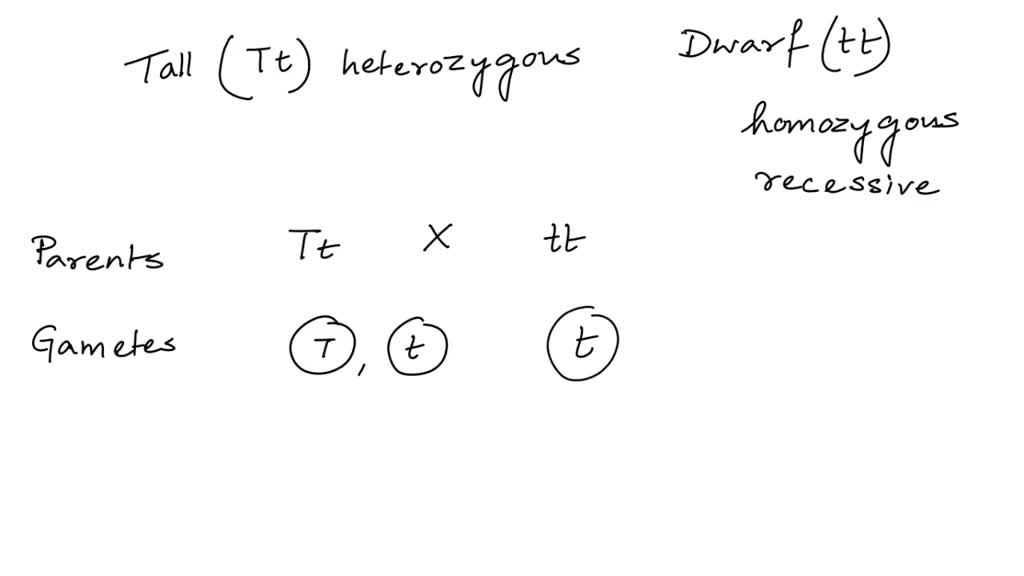 Tall (Tt) heterozygous Dwarf (tt)
homozygous
recessive
Parents Tt X tt
Gametes T, t t